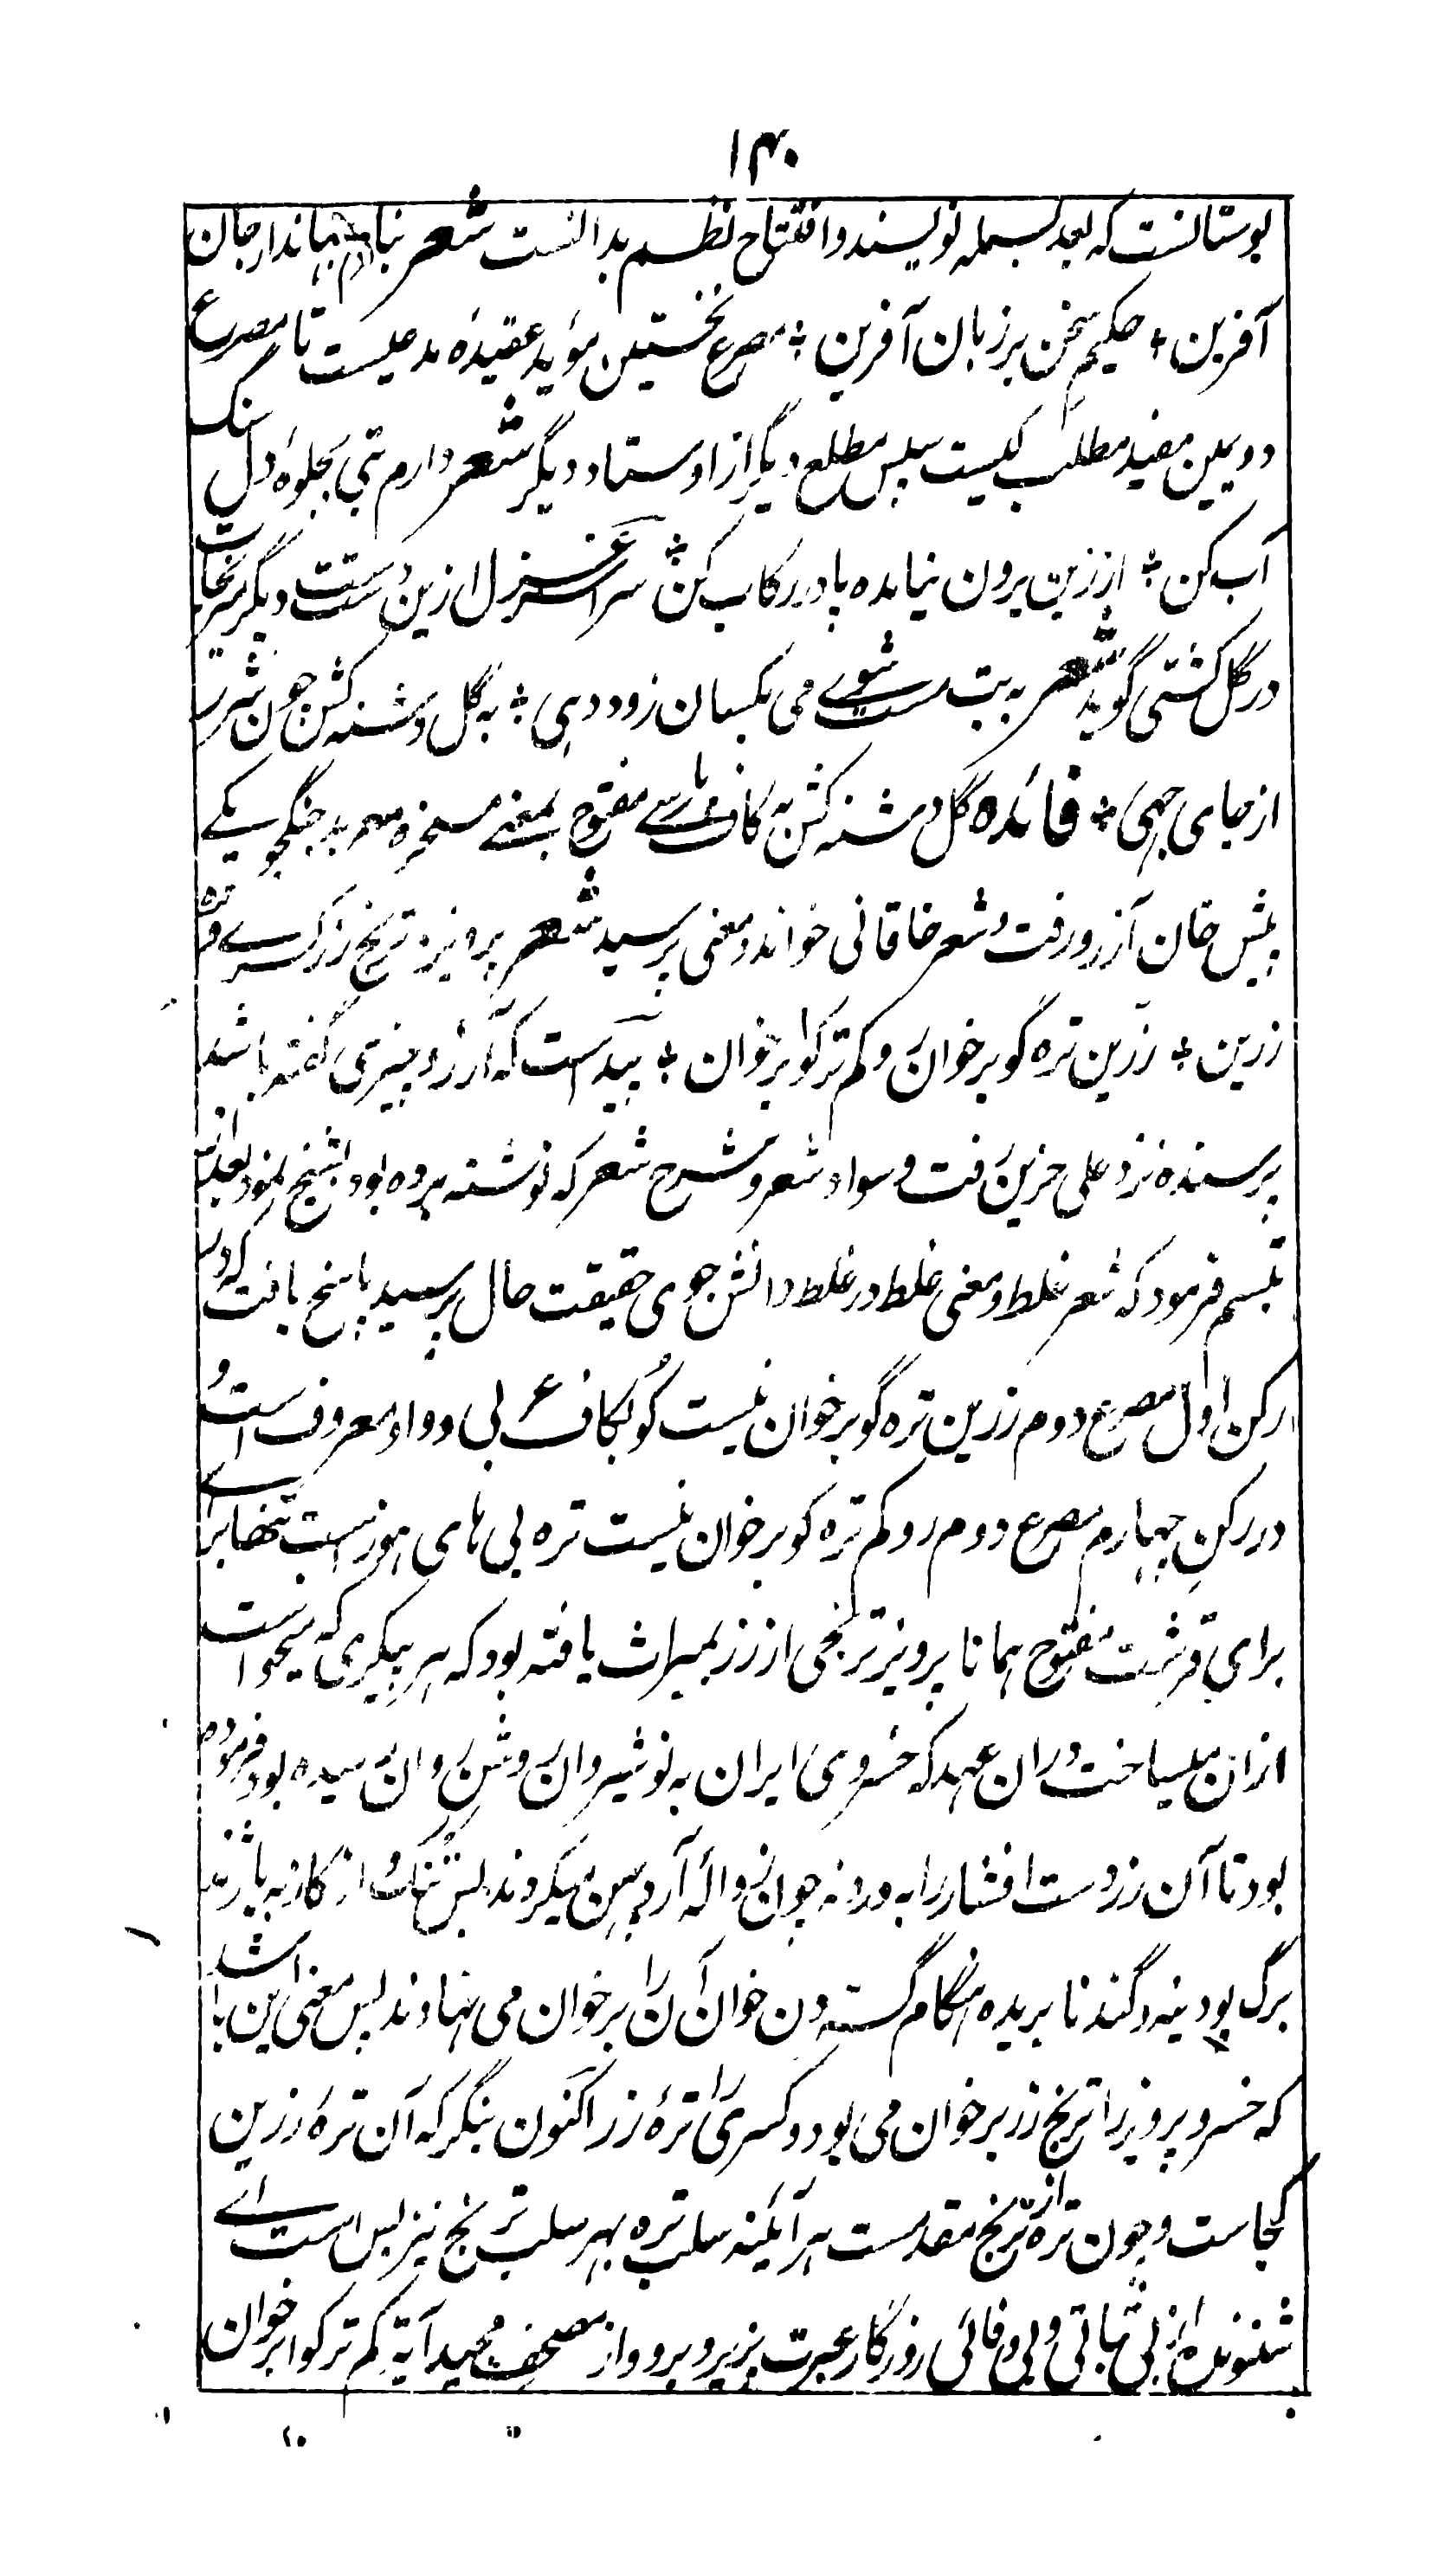 ۱۴۰
بوستانست که بعد بسمله نویسند و افتتاح نظم بدانست شعر بنام جهاندار جان
آفرین ؛ حکیم سخن بر زبان آفرین ؛ مصرع نخستین مؤید عقیدهٔ مدعیست تا مصرع
دویمین مفید مطلب کیست سپس مطلع دیگر از اوستاد دیگر شعر دارم بتی بجلوهٔ دل سنگ
آب کن ؛ از زین برون نیامده پا در رکاب کن ؛ سراسر غزل ازین دست ست دیگر میر نجات
در گل کشتی گوید شعر به بت مست شوے می بکسان زود دهی ؛ به گل دشنه کش چون شرر
از جای جهی ؛ فائده گل دشنه کش به کاف پارسے مفتوح بمعنے مسخره معربد جنگجو یکے
پیش خان آرزو رفت و شعر خاقانی خواند و معنی پرسید شعر پرویز و ترنج زر کسرے و تره
زرین ؛ زرین تره کو برخوان رو کم ترکوا برخوان ؛ پیداست که آرزو چیزی گفته باشد
پرسنده نزد علی حزین رفت و سواد شعر و شرح شعر که نوشته برده بود بشیخ نمود بعد از
تبسم فرمود که شعر غلط و معنی غلط در غلط دانش جوی حقیقت حال پرسید پاسخ یافت که در
رکن اول مصرع دوم زرین تره گو برخوان نیست کو بکاف عربی و واو معروف است و
در رکن چهارم مصرع دوم رو کم تره کو برخوان نیست تره بی های هوز است تنها براے
برای قرشت مفتوح همانا پرویز ترنجی از زر بمیراث یافته بود که هر پیکری که میخواست
ازان میساخت و دران عهد که خسروی ایران به نوشیروان روشن روان رسیده بود فرموده
بود تا آن زر دست افشار را به وردنه چون نواله آرد پهن میکردند پس تنک و از گاز به پارش
برگ پودینه و گندنا بریده هنگام گستردن خوان آن را برخوان می نهادند پس معنی این باشد
که خسرو پرویز را ترنج زر برخوان می بود و کسری را ترهٔ زر اکنون بنگر که آن ترهٔ زرین
کجاست و چون تره از ترنج مقدمست هر آئینه سلب تره بهر سلب ترنج نیز بس است اے
شنونده از بی ثباتی و بی وفائی روزگار عبرت پزیر و برو و از مصحف مجید آیهٔ کم ترکوا برخوان